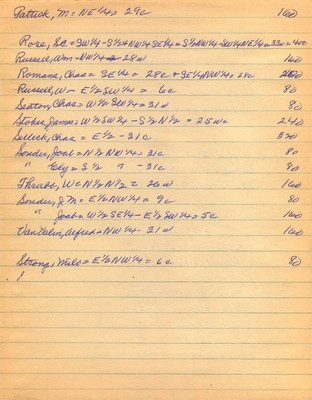 Patrick, M = NE 1/4 = 29c 160
Rose, = SW 1/4 - S 1/2 NW 1/4 SE 1/4 = S 1/2 NW 1/4 - SW 1/4 NE 1/4 = 33w = 400
Russell, Wm - NW 1/4 28w 160
Romane, Chas = SE 1/4 = 28c + SE 1/4 NW 1/4 = 28c 200
Russell, W - E 1/2 SW 1/4 = 6c 80
Seaton, Chas = W 1/2 SW 1/4 = 31w 80
Stokes, James = W 1/2 SW 1/4 - S 1/2 N 1/2 = 25w = 240
Sellick, Chas = E 1/2 - 31c 320
Sonder, Joab = N 1/2 NW 1/4 = 31c 80
" = S 1/2 " - 31c 80
W = N 1/2 N 1/2 = 26w 160
Sonder, J.M = E 1/2 NE 1/4 = 9c 80
" Joab = W 1/2 SE 1/4 - E 1/2 SW 1/4 = 5c 160
Alfred = NW 1/4 - 31w 160
Strong, Milo = E 1/2 NW 1/4 = 6c 80